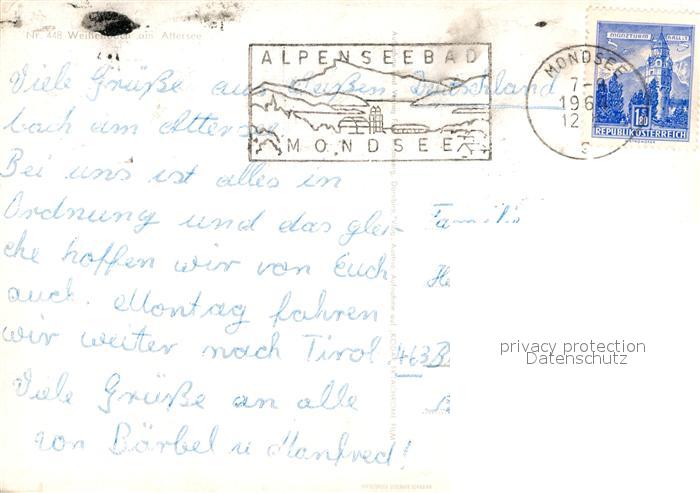 Nr. 448 Weißenbach am Attersee
ALPENSEEBAD
MONDSEE
MONDSEE
7-
196
12
MÜNZTURM HALL i. T.
S
1.80
REPUBLIK ÖSTERREICH
Viele Grüße aus Weißen Deutschland
bach am Attersee
Bei uns ist alles in
Ordnung und das glei
che hoffen wir von Euch
auch. Montag fahren
wir weiter nach Tirol.
Viele Grüße an alle
von Bärbel u Manfred!
Familie
He
463 B
privacy protection
Datenschutz